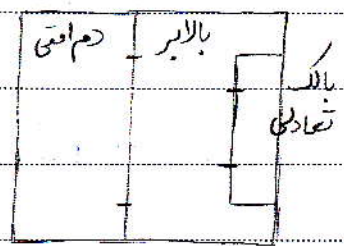 دم افقی
بالابر
بالک
تعادلی